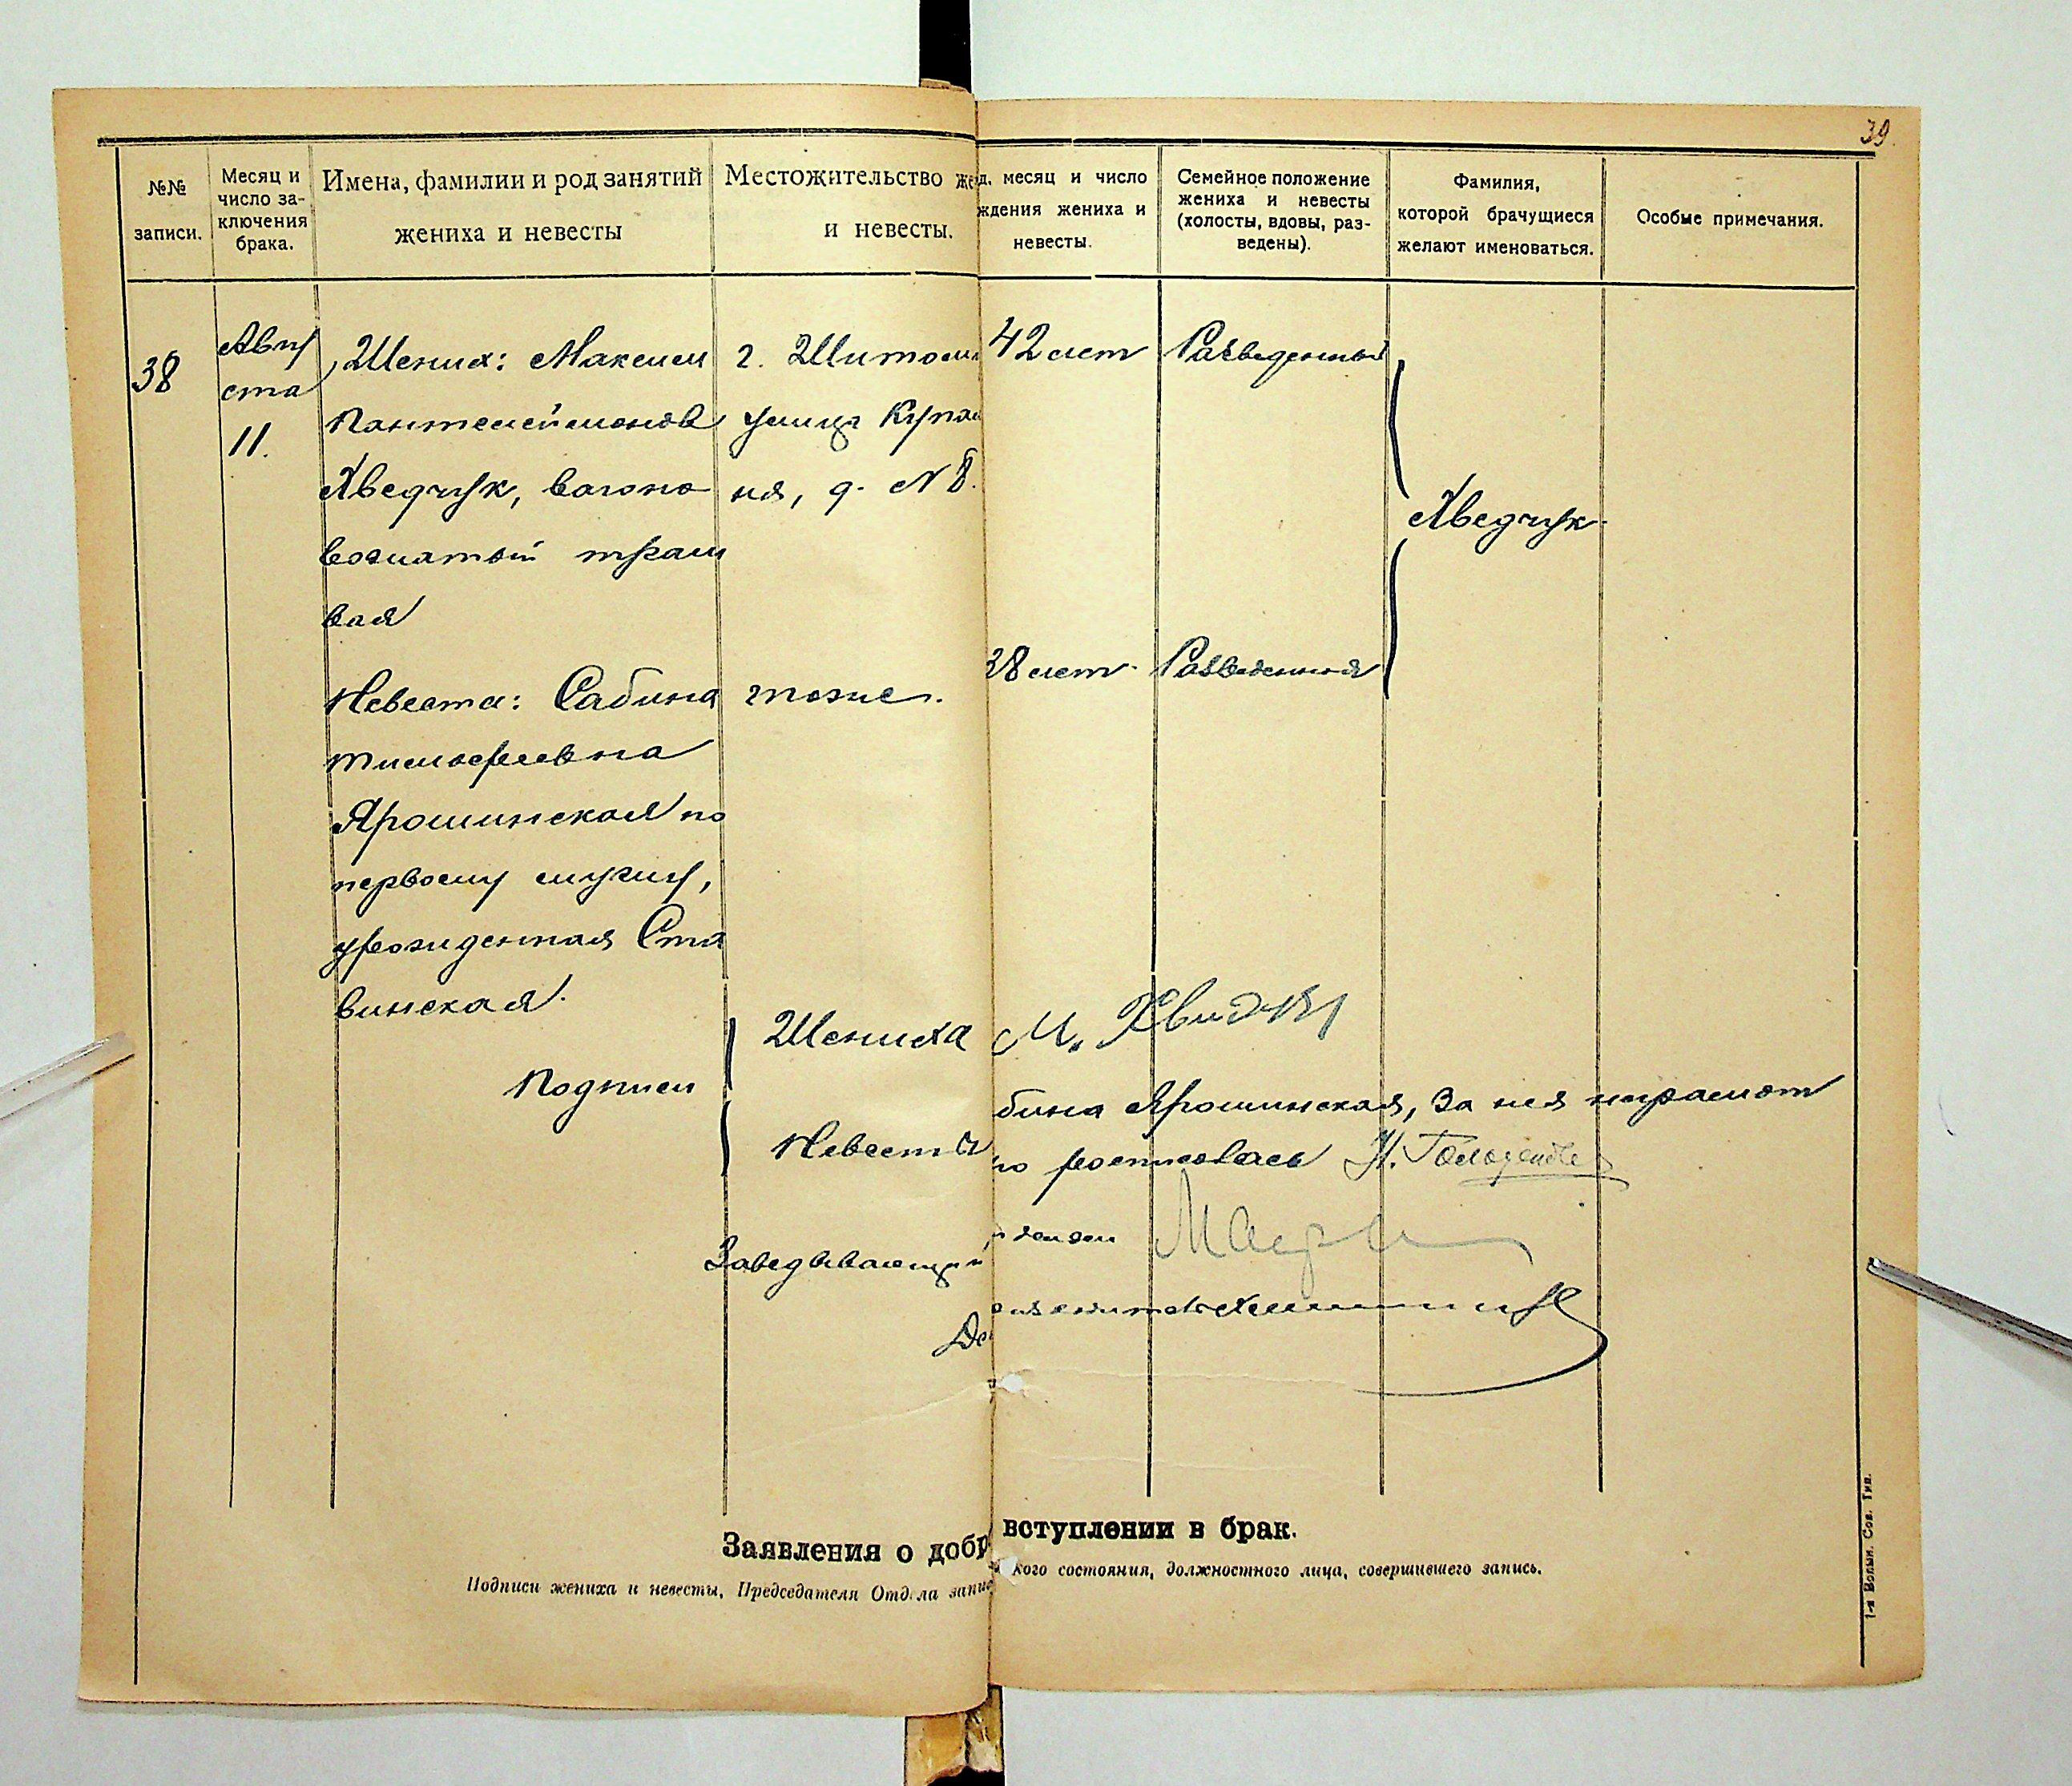 39.
№№ записи.
Месяц и число за-
ключения брака.
Имена, фамилии и род занятий
жениха и невесты
Местожительство же
и невесты.
д, месяц и число
ждения жениха и
невесты.
Семейное положение
жениха и невесты
(холосты, вдовы, раз-
ведены).
Фамилия,
которой брачущиеся
желают именоваться.
Особые примечания.
38
Авгу
ста
11.
Жених: Максим
Пантелеймонов
Хведчук, вагоно
вожатый трам
вая
г. Житом
улица Купал
ня, д. № 8.
42 лет
Разведенный
Хведчук
Невеста: Сабина
Тимофеевна
Ярошинская по
первому мужу,
урожденная Ста
винская.
тоже.
38 лет.
Разведенная
Подписи
Жениха М.
Невесты бина Ярошинская, за нея неграмот
но росписалась
Заведывающий
Де
Заявления о добр вступлении в брак.
Подписи жениха и невесты, Председателя Отдела запис кого состояния, должностного лица, совершившего запись.
1-я Волын. Сов. Тип.